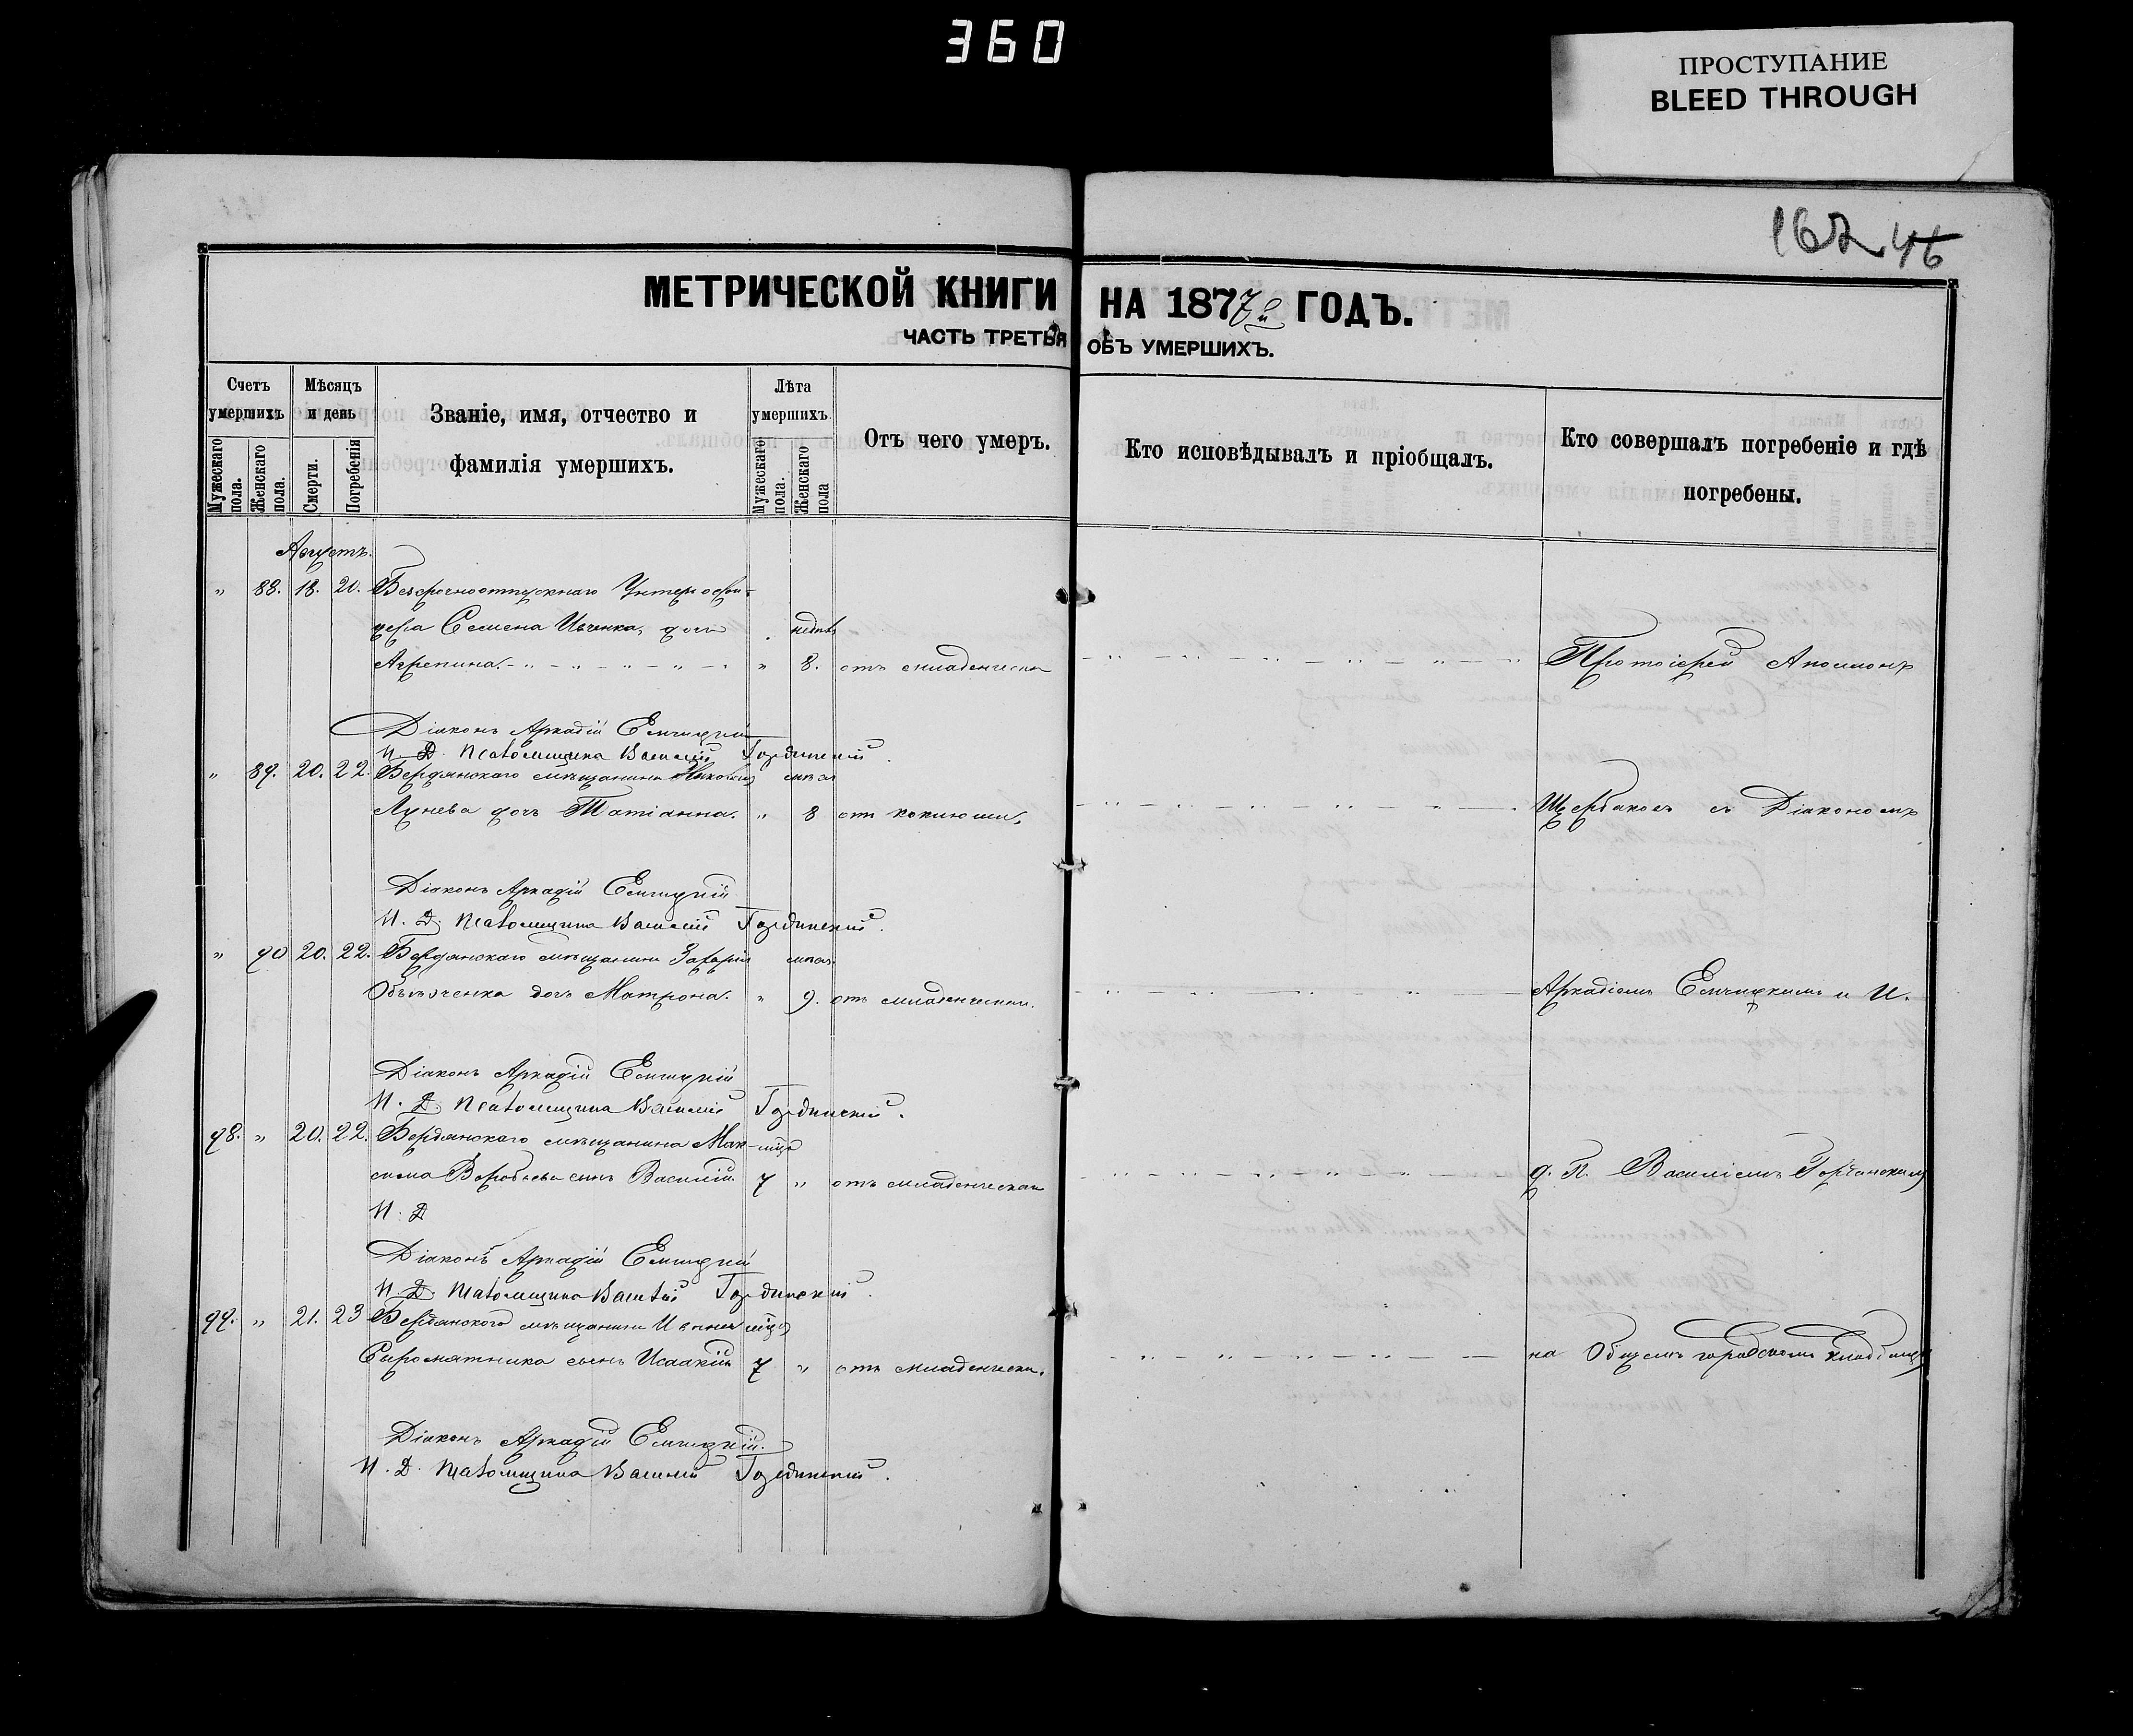 360
ПРОСТУПАНИЕ
BLEED THROUGH
162 46
МЕТРИЧЕСКОЙ КНИГИ НА 1877й ГОДЪ.
ЧАСТЬ ТРЕТЬЯ ОБЪ УМЕРШИХЪ.
Счетъ умершихъ
Мужескаго пола.
Женскаго пола.
Мѣсяцъ и день
Смерти.
Погребенія
Званіе, имя, отчество и фамилія умершихъ.
Лѣта умершихъ.
Мужескаго пола.
Женскаго пола
Отъ чего умеръ.
Кто исповѣдывалъ и пріобщалъ.
Кто совершалъ погребеніе и гдѣ погребены.
Августъ.
" 88. 18. 20. Безсрочноотпускнаго Унтеръ офи-
цера Семена Ивченка, дочь недѣль
Агрепина. " 8. отъ младенческ Протоіерей
Діаконъ Аркадій Емчицкій
И. Д. Псаломщика Василій Гординскій.
" 89. 20. 22. Бердянскаго мѣщанина мѣся
Лунева дочь Татіанна. " 8 отъ коклюша. Щербаковъ съ Діакономъ
Діаконъ Аркадій Емчицкій
И. Д. Псаломщика Василій Гординскій.
" 90 20. 22. Бердянскаго мѣщанина Захарія мѣся.
дочь Матрона. " 9. отъ младенческ. Аркадіемъ Емчицкимъ и И.
Діаконъ Аркадій Емчицкій
И. Д. Псаломщика Василій Гординскій.
98. " 20. 22. Бердянскаго мѣщанина Мак-
сима Воробьева сынъ Василій. 7 " отъ младенческая д. П. Василіемъ Гординскимъ
И. Д
Діаконъ Аркадій Емчицкій
И. Д. Псаломщика Василій Гординскій.
99. " 21. 23 Бердянскаго мѣщанина
Сыромятника сынъ Исаакій 7 " отъ младенческ. на Общемъ городскомъ кладбищѣ
Діаконъ Аркадій Емчицкій.
И. Д. Псаломщика Василій Гординскій.